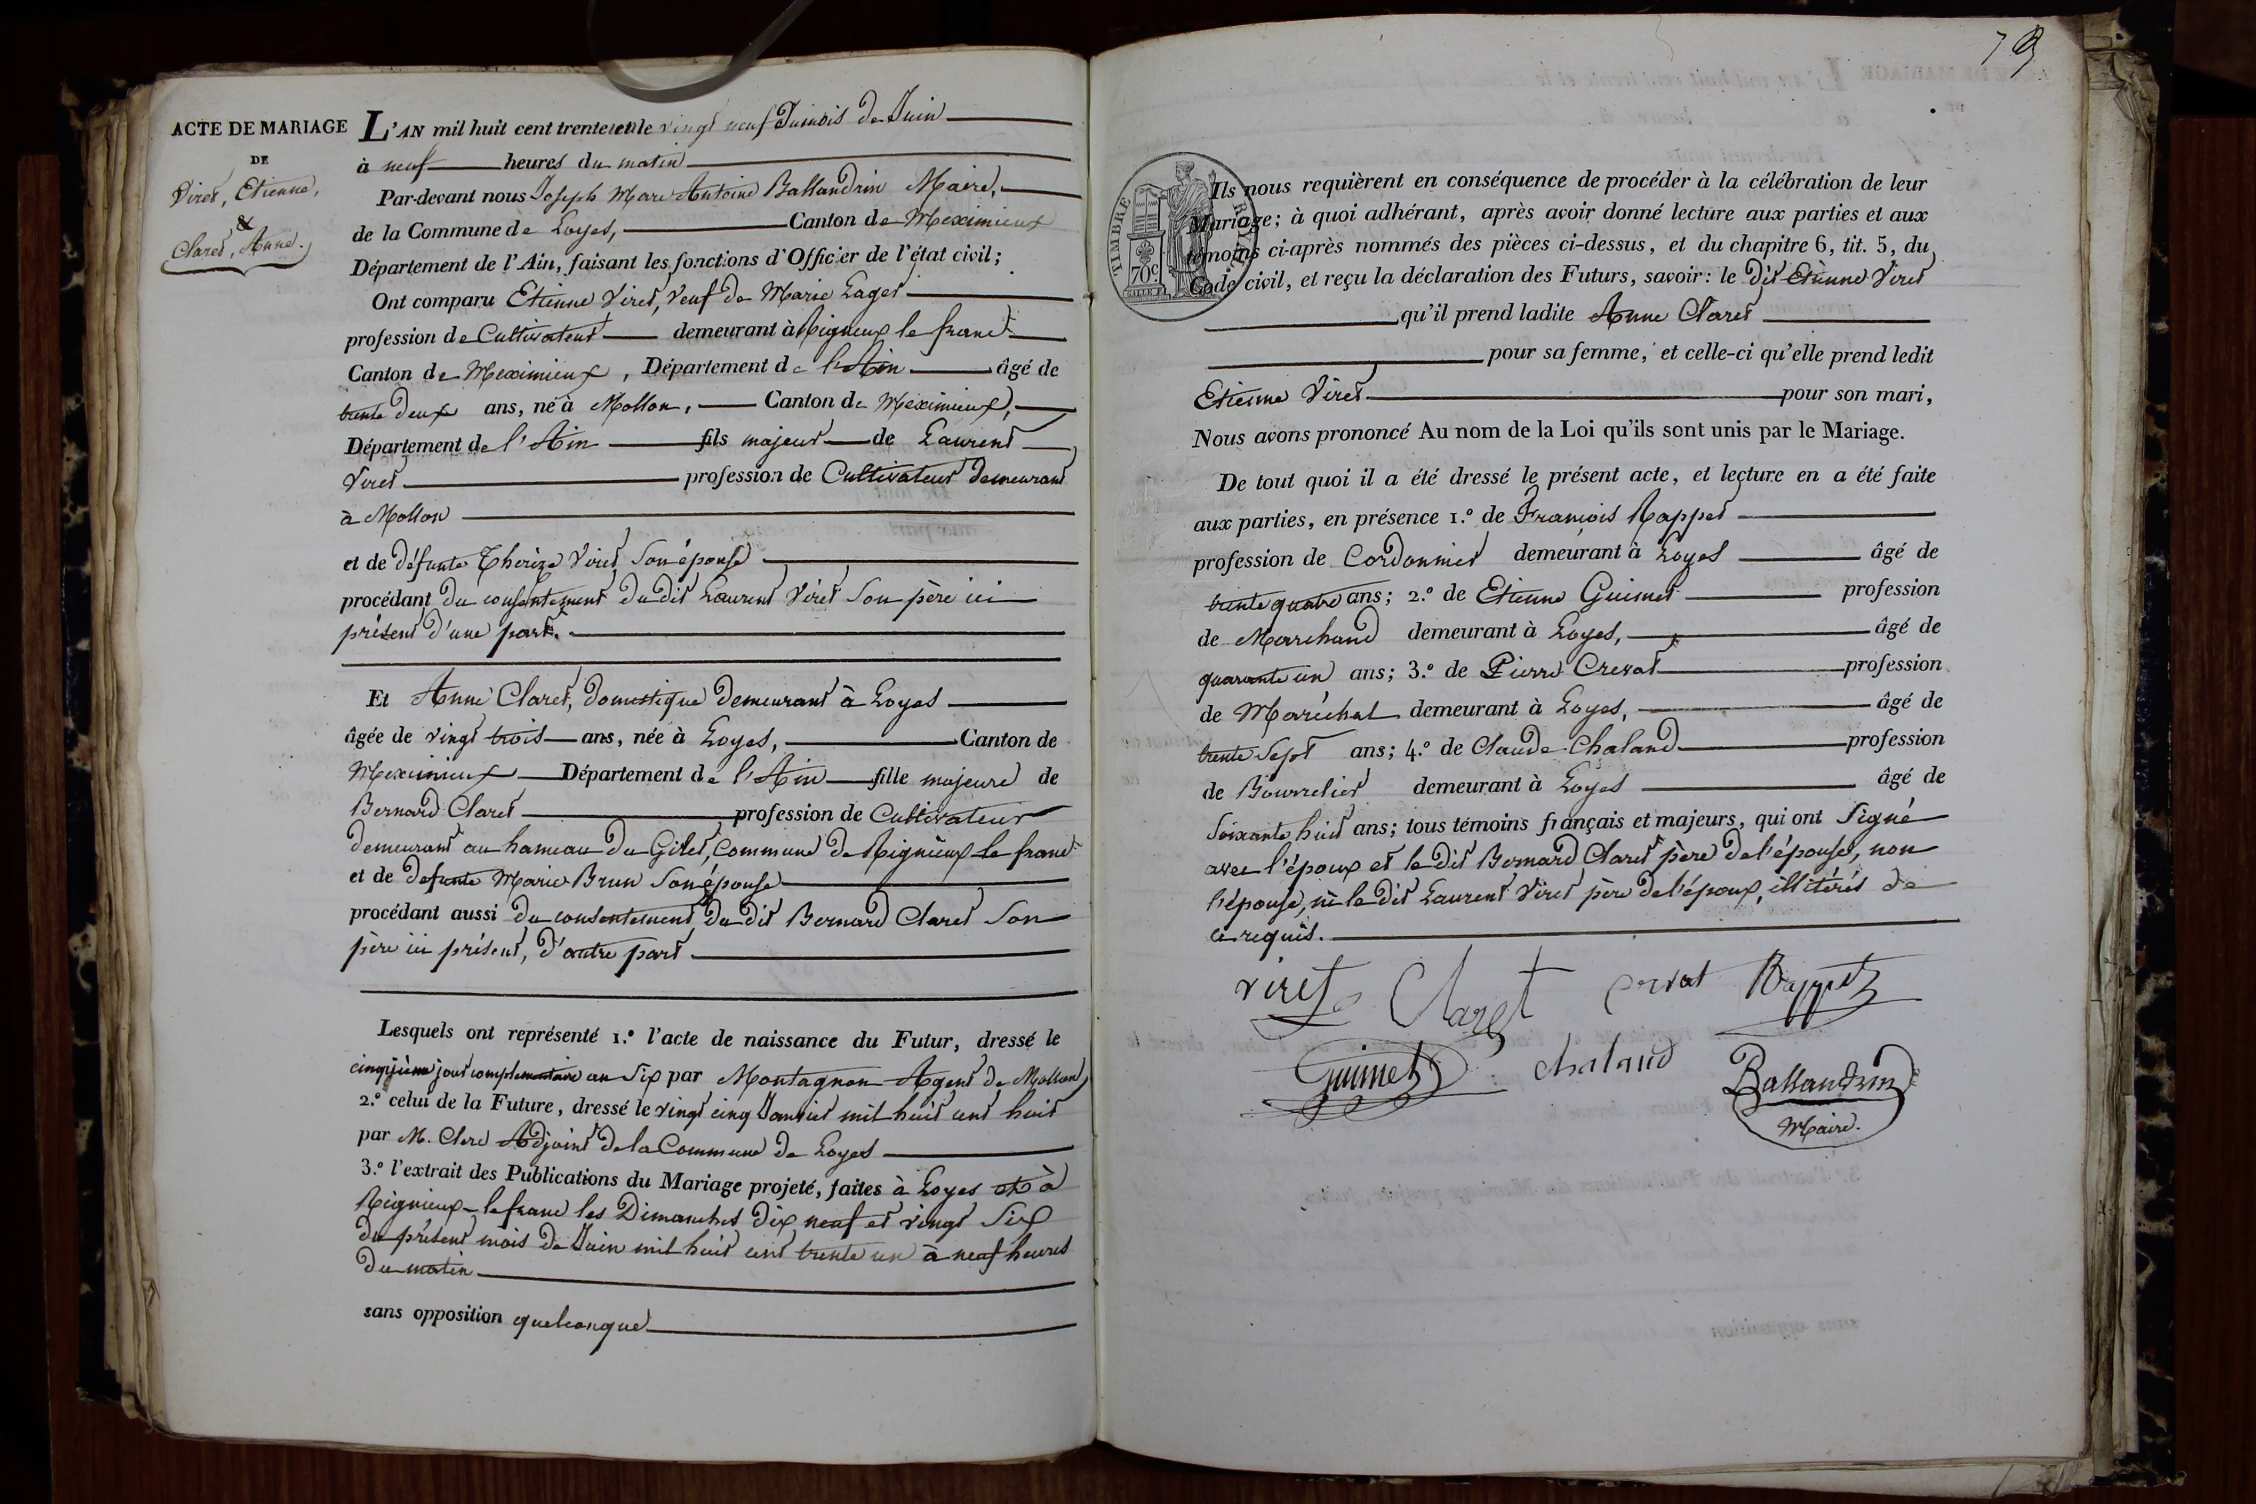 ACTE DE MARIAGE
DE
Viret, Etienne,
&
Claret, Anne.
L'AN mil huit cent trente et un le vingt neuf du mois de Juin
à neuf heures du matin
Par-devant nous Joseph Marc Antoine Ballandrin Maire,
de la Commune de Loyes, Canton de Meximieux
Département de l'Ain, faisant les fonctions d'Officier de l'état civil;
Ont comparu Etienne Viret, Veuf de Marie Lager
profession de Cultivateur demeurant à Rigneux le franc
Canton de Meximieux, Département de l'Ain âgé de
trente deux ans, né à Mollon, Canton de Meximieux,
Département de l'Ain fils majeur de Laurent
Viret profession de Cultivateur demeurant
à Mollon
et de défunte Therize Viret son épouse
procédant du consentement du dit Laurent Viret son père ici
présent d'une part.
Et Anne Claret, domestique demeurant à Loyes
âgée de vingt trois ans, née à Loyes, Canton de
Meximieux Département de l'Ain fille majeure de
Bernard Claret profession de Cultivateur
demeurant au hameau du Gillet, Commune de Rignieux le franc
et de defunte Marie Brun son épouse
procédant aussi du consentement du dit Bernard Claret son
père ici présent, d'autre part
Lesquels ont représenté 1.º l'acte de naissance du Futur, dressé le
cinquième jour complementaire an Six par Montagnon Agent de Mollon,
2.º celui de la Future, dressé le vingt cinq Janvier mil huit cent huit
par M. Clerc Adjoint de la Commune de Loyes
3.º l'extrait des Publications du Mariage projeté, faites à Loyes et à
Rignieux-le franc les Dimanches dix neuf et vingt Six
du présent mois de Juin mil huit cent trente un à neuf heures
du matin
sans opposition quelconque
TIMBRE ROYAL
70c
Ils nous requièrent en conséquence de procéder à la célébration de leur
Mariage; à quoi adhérant, après avoir donné lecture aux parties et aux
témoins ci-après nommés des pièces ci-dessus, et du chapitre 6, tit. 5, du
Code civil, et reçu la déclaration des Futurs, savoir: le dit Etienne Viret
qu'il prend ladite Anne Claret
pour sa femme, et celle-ci qu'elle prend ledit
Etienne Viret pour son mari,
Nous avons prononcé Au nom de la Loi qu'ils sont unis par le Mariage.
De tout quoi il a été dressé le présent acte, et lecture en a été faite
aux parties, en présence 1.º de François Rappet
profession de Cordonnier demeurant à Loyes âgé de
trente quatre ans; 2.º de Etienne Guimet profession
de Marchand demeurant à Loyes, âgé de
quarante un ans; 3.º de Pierre Crevat profession
de Maréchal demeurant à Loyes, âgé de
trente Sept ans; 4.º de Claude Chaland profession
de Bourrelier demeurant à Loyes âgé de
Soixante huit ans; tous témoins français et majeurs, qui ont Signé
avec l'époux et le dit Bernard Claret père de l'épouse, non
l'épouse, ni le dit Laurent Viret père de l'époux, illitérés de
ce requis.
viret Claret crvat Rappet
Guimet chaland Ballandrin
Maire.